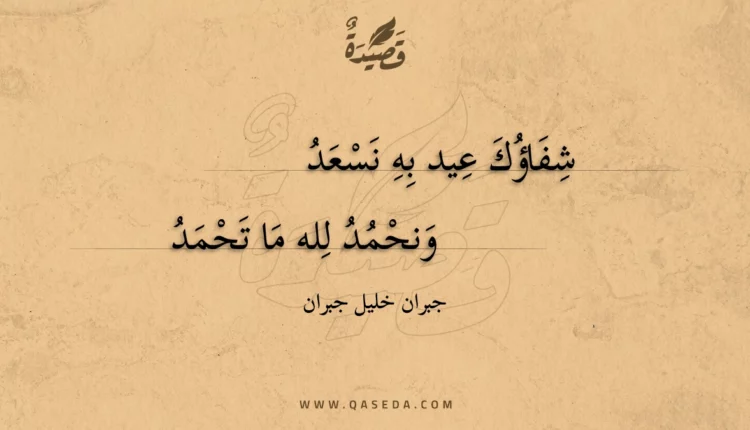 قَصِيْدَةٌ
شِفَاؤُكَ عِيد بِهِ نَسْعَدُ
وَنحْمُدُ لِله مَا تَحْمَدُ
جبران خليل جبران
WWW.QASEDA.COM